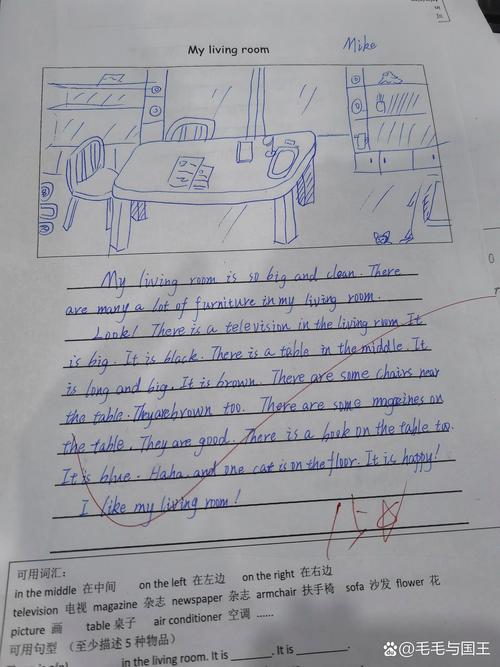 My living room
Mike
My living room is so big and clean. There
are many a lot of furniture in my living room.
Look! There is a television in the living room It
is big. It is black. There is a table in the middle. It
is long and big. It is brown. There are some chairs near
the table. They are brown too. There are some magezines on
the table. They are good. There is a book on the table too.
It is blue. Haha, and one cat is on the floor. It is happy!
I like my living room!
可用词汇:
in the middle 在中间 on the left 在左边 on the right 在右边
television 电视 magazine 杂志 newspaper 杂志 armchair 扶手椅 sofa 沙发 flower 花
picture 画 table 桌子 air conditioner 空调 ......
可用句型 (至少描述 5 种物品)
in the living room. It is ______. It is ______.
@毛毛与国王